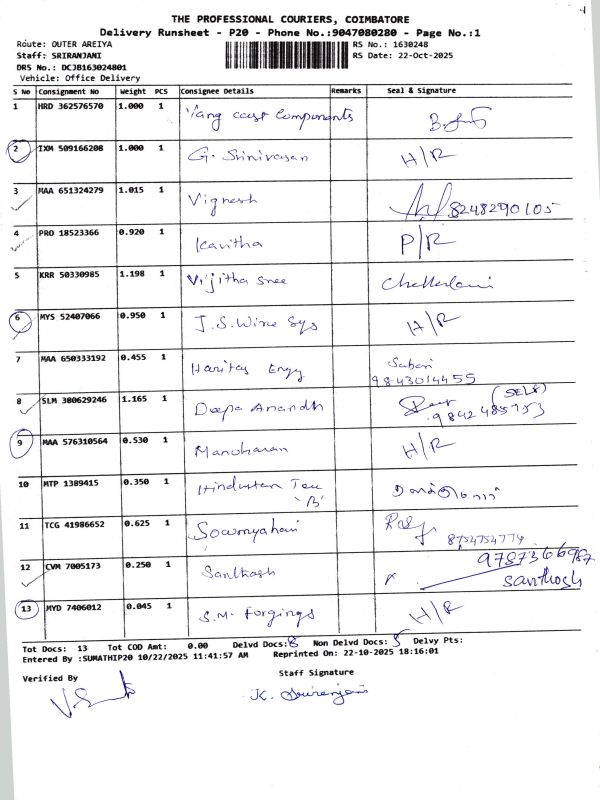 THE PROFESSIONAL COURIERS, COIMBATORE
Delivery Runsheet - P20 - Phone No.:9047080280 - Page No.:1
Route: OUTER AREIYA
RS No.: 1630248
Staff: SRIRANJANI
RS Date: 22-Oct-2025
DRS No.: DCJB163024801
Vehicle: Office Delivery
S No Consignment No Weight PCS Consignee Details Remarks Seal & Signature
1 HRD 362576570 1.000 1 Yang cast Components
2 IXM 509166208 1.000 1 G. Srinivasan H/R
3 MAA 651324279 1.015 1 Vignesh 8248290105
4 PRO 18523366 0.920 1 Kavitha P/R
5 KRR 50330985 1.198 1 Vijitha Sree
6 MYS 52407066 0.950 1 J.S. Wire Sys H/R
7 MAA 650333192 0.455 1 Haritas Engg
9843014455
8 SLM 380629246 1.165 1 Deepa Anandh (SELF)
9842485753
9 MAA 576310564 0.530 1 Manoharan H/R
10 MTP 1389415 0.350 1 Hindustan Tea
'B'
11 TCG 41986652 0.625 1 Sowmyahari
8754754774
12 CVM 7005173 0.250 1 Santhosh 9787366987
Santhosh
13 MYD 7406012 0.045 1 S.M. Forgings H/R
Tot Docs: 13 Tot COD Amt: 0.00 Delvd Docs: 8 Non Delvd Docs: 5 Delvy Pts:
Entered By :SUMATHIP20 10/22/2025 11:41:57 AM Reprinted On: 22-10-2025 18:16:01
Verified By Staff Signature
K. Sriranjani